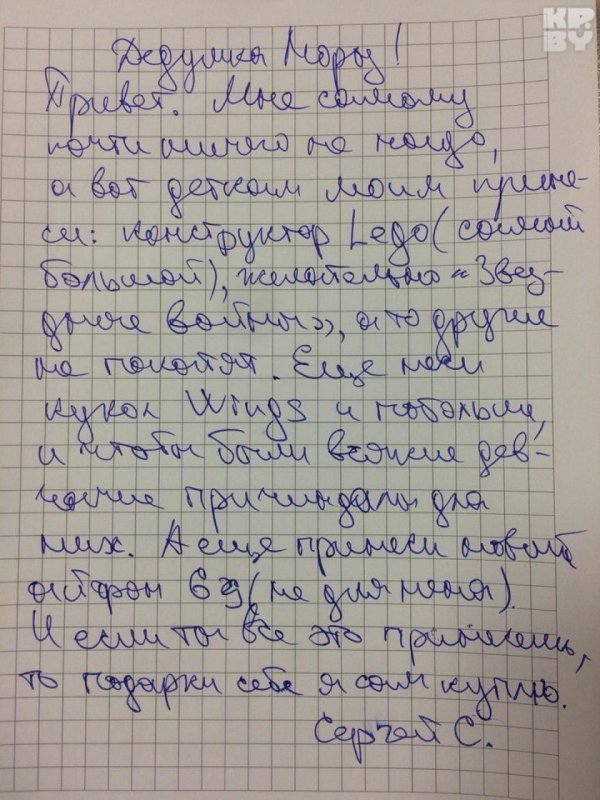 KP.
BY
Дедушка Мороз!
Привет. Мне самому
почти ничего не надо,
а вот деткам моим прине-
си: конструктор Lego (самый
большой), желательно «Звез-
дные войны», а то другие
не покатят. Еще неси
кукол Wings и побольше,
и чтобы были всякие дев-
чачие причиндалы для
них. А еще принеси новый
айфон 6s (не для меня).
И если ты все это принесешь,
то подарки себе я сам куплю.
Сергей С.